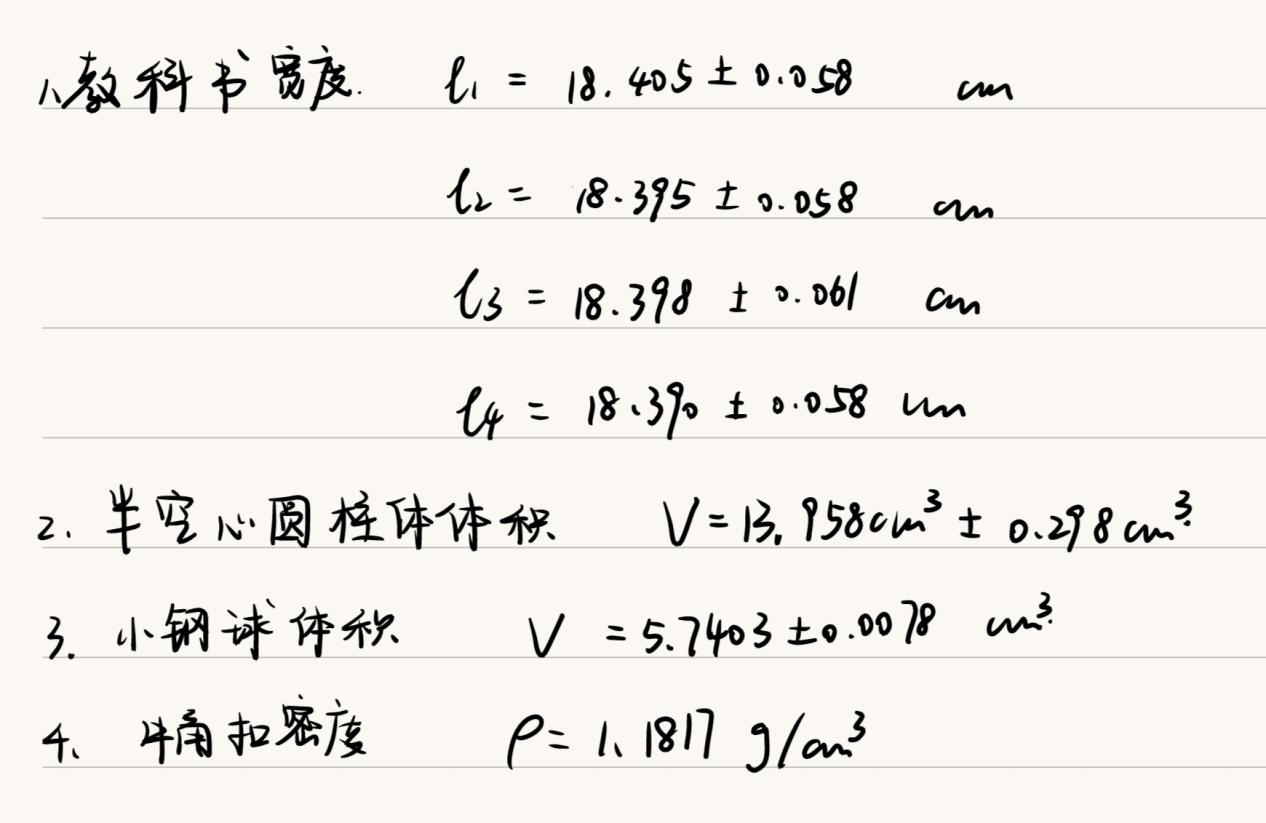 1、教科书宽度. l₁ = 18.405 ± 0.058 cm
l₂ = 18.395 ± 0.058 cm
l₃ = 18.398 ± 0.061 cm
l₄ = 18.390 ± 0.058 cm
2. 半空心圆柱体体积 V = 13.958cm³ ± 0.298cm³.
3. 小钢球体积 V = 5.7403 ± 0.0078 cm³.
4、 牛角扣密度 ρ = 1.1817 g/cm³